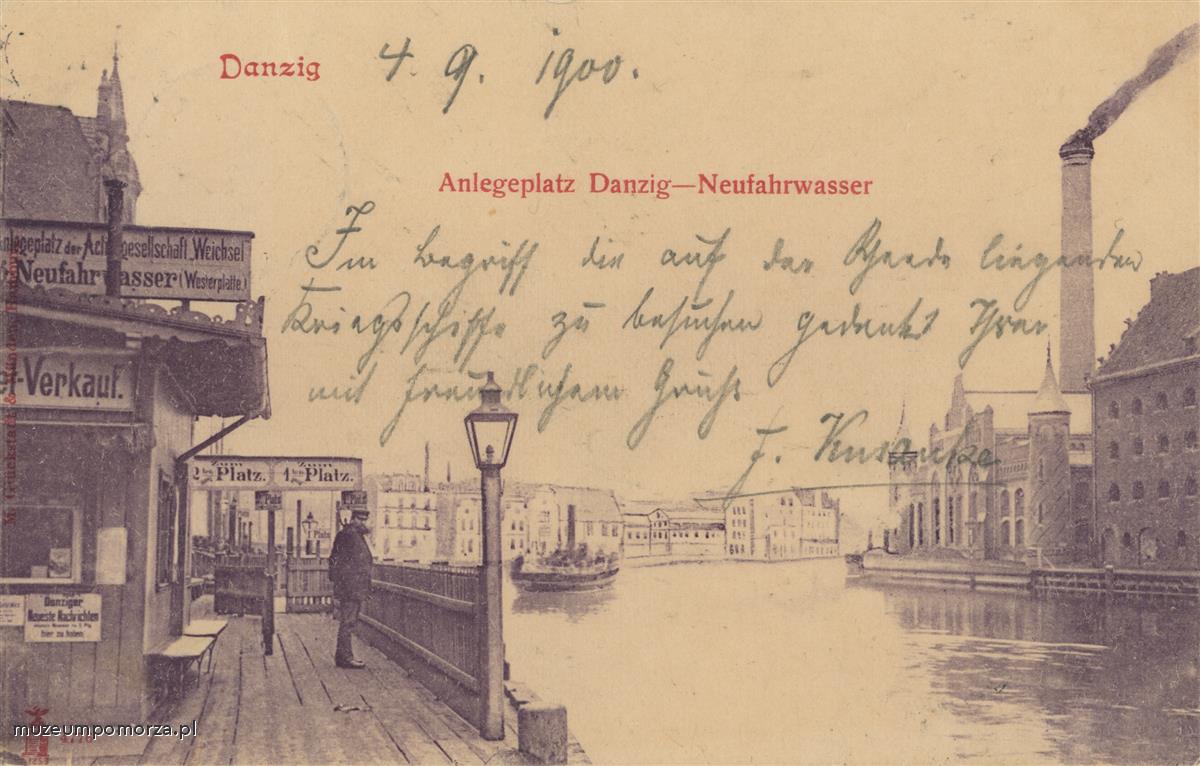 Danzig 4. 9. 1900.
Anlegeplatz Danzig—Neufahrwasser
Im Begriff die auf der Rheede liegenden
Kriegsschiffe zu besuchen gedenkt Ihrer
mit freundlichem Gruß
J.
Anlegeplatz der Actiengesellschaft „Weichsel
Neufahrwasser (Westerplatte.)
-Verkauf.
Zum 2ten Platz. Zum 1ten Platz.
Danziger
Neueste Nachrichten
hier zu haben
muzeumpomorza.pl